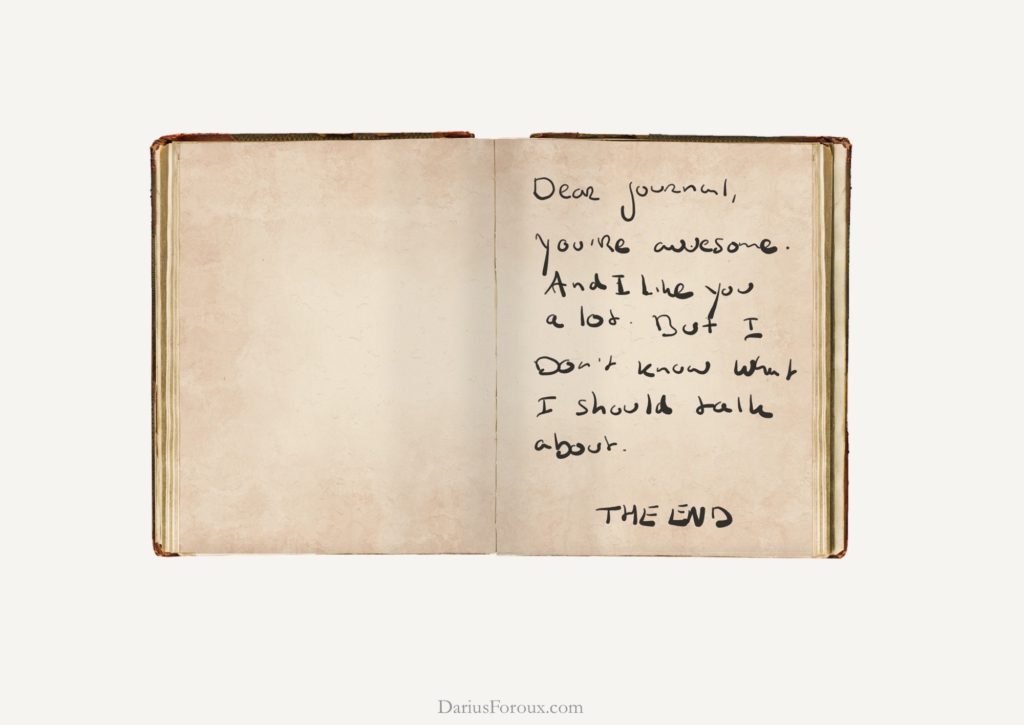 Dear journal,
you're awesome.
And I like you
a lot. But I
Don't know what
I should talk
about.
THE END
DariusForoux.com